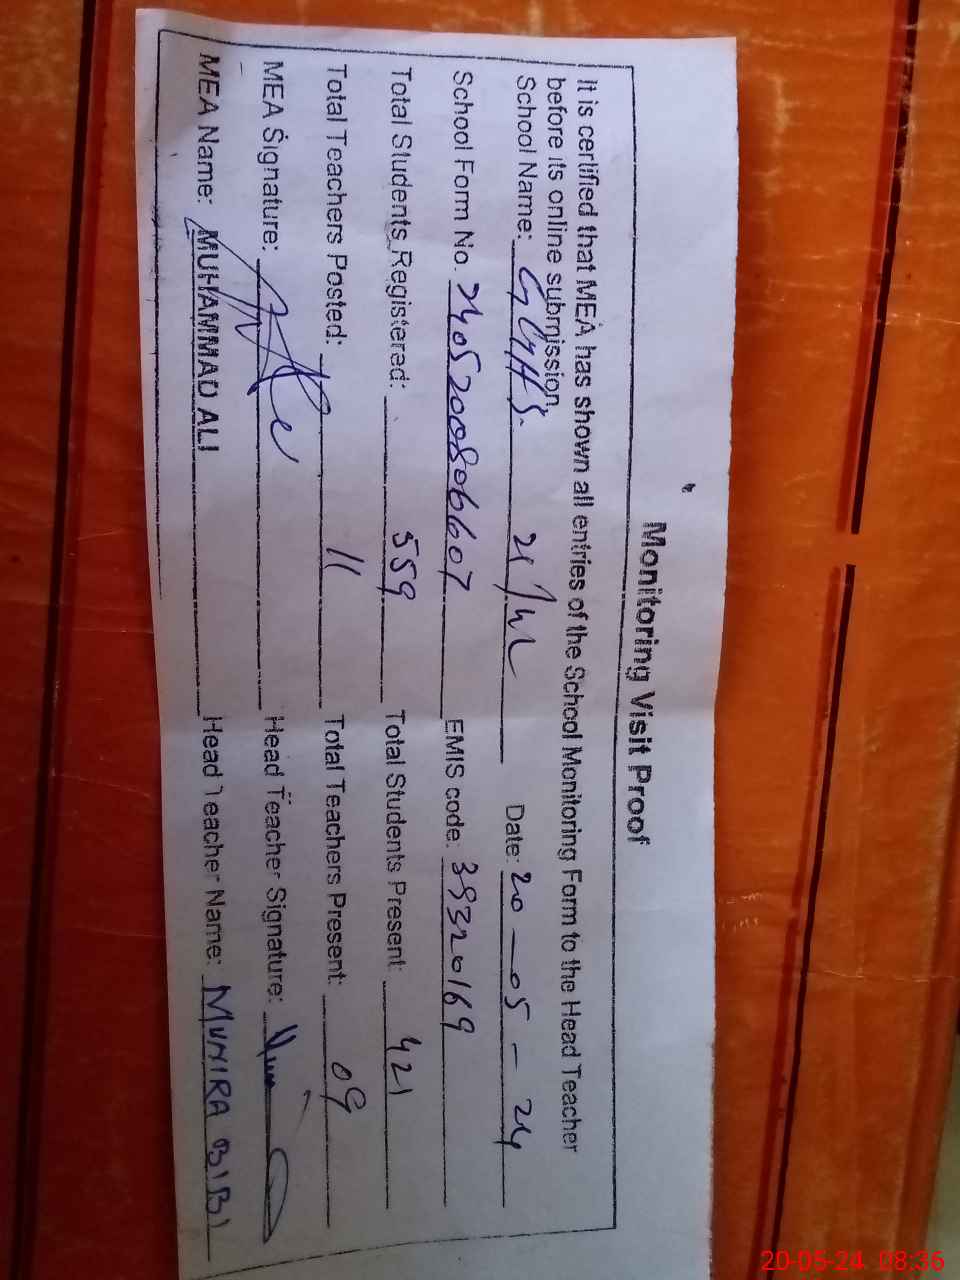 Monitoring Visit Proof
It is certified that MEA has shown all entries of the School Monitoring Form to the Head Teacher
before its online submission.
School Name: GGHS. Date: 20-05-24
School Form No. 2405200806607 EMIS code: 39320169
Total Students Registered: 559 Total Students Present: 421
Total Teachers Posted: 11 Total Teachers Present: 09
MEA Signature: Head Teacher Signature:
MEA Name: MUHAMMAD ALI Head Teacher Name: MUNIRA BIBI
20-05-24 08:36